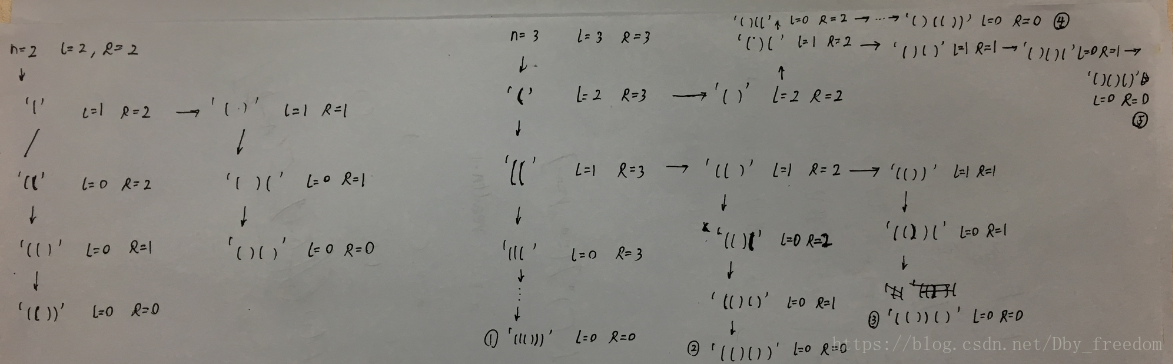 n=2 L=2, R=2
'(' L=1 R=2 → '()' L=1 R=1
'((' L=0 R=2
'()(' L=0 R=1
'(()' L=0 R=1
'()()' L=0 R=0
'(())' L=0 R=0
'()((' L=0 R=2 → ··· → '()(())' L=0 R=0 ④
n=3 L=3 R=3
'()(' L=1 R=2 → '()()' L=1 R=1 → '()()(' L=0 R=1 →
'()()()'
L=0 R=0
⑤
'(' L=2 R=3 → '()' L=2 R=2
'((' L=1 R=3 → '(()' L=1 R=2 → '(())' L=1 R=1
'(((' L=0 R=3
'(()(' L=0 R=2
'(())(' L=0 R=1
'(()()' L=0 R=1
① '((()))' L=0 R=0
② '(()())' L=0 R=0
③ '(())()' L=0 R=0
https://blog.csdn.net/Dby_freedom